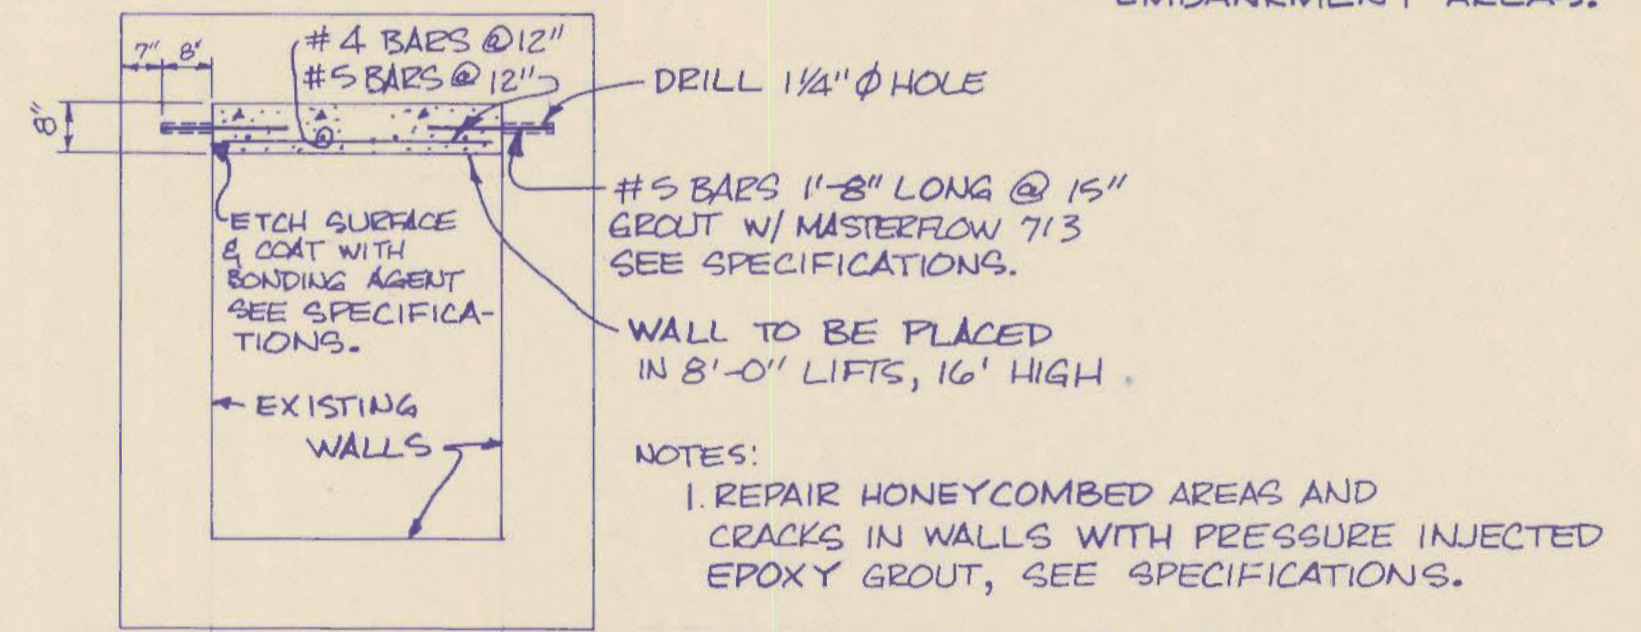 EMBANKMENT AREAS.
7" 8"
#4 BARS @12"
#5 BARS @ 12"
8"
DRILL 1¼" Ø HOLE
#5 BARS 1'-8" LONG @ 15"
GROUT W/ MASTERFLOW 713
SEE SPECIFICATIONS.
ETCH SURFACE
& COAT WITH
BONDING AGENT
SEE SPECIFICA-
TIONS.
WALL TO BE PLACED
IN 8'-0" LIFTS, 16' HIGH
EXISTING
WALLS
NOTES:
1. REPAIR HONEYCOMBED AREAS AND
CRACKS IN WALLS WITH PRESSURE INJECTED
EPOXY GROUT, SEE SPECIFICATIONS.